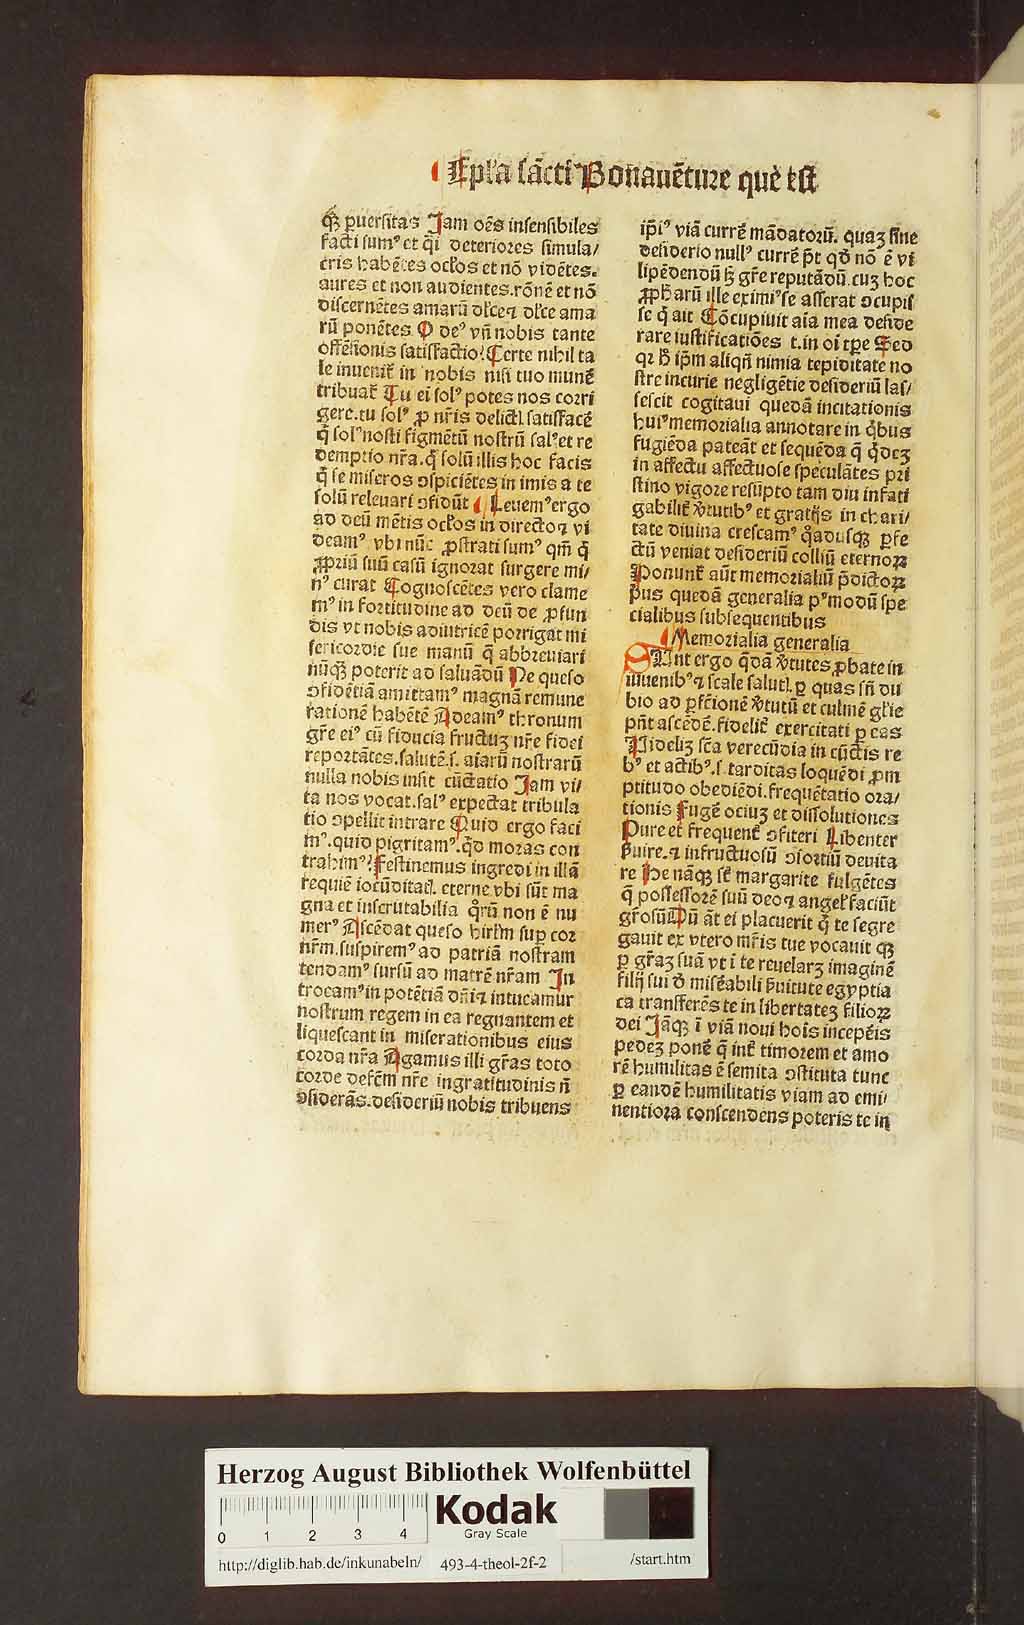 Epl'a sācti Bonauēture què est
qꝫ ꝑuersitas Jam oēs insensibiles
facti sumꝰ et q̄i deteriores simula/
cris habētes oc̄l'os et nō vidētes.
aures et non audientes.rōnē et nō
discernētes amarū dl'ce ⁊ dl'ce ama
rū ponētes O deꝰ vn̄ nobis tante
offensionis satisfactio? Certe nihil ta
le inuenit̄ in nobis nisi tuo munē
tribuat̄ Tu ei solꝰ potes nos corri
gere.tu solꝰ ꝓ nr̄is delict. satisfacē
q̄ solꝰ nosti figmētū nostrū salꝰ et re
demptio nr̄a.q̄ solū illis hoc facis
q̄ se miseros ꝯspiciētes in imis a te
solū releuari ꝯfidūt Leuemꝰ ergo
ad deū mētis ocl'os in directo ⁊ vi
deamꝰ vbi nūc ꝓstrati sumꝰ qm̄ q̄
ꝓpriū suū casū ignorat surgere mi/
nꝰ curat Cognoscētes vero clame
mꝰ in fortitudine ad deū de ꝓfun
dis vt nobis adiutricē porrigat mi
sericordie sue manū q̄ abbreuiari
nūqꝫ poterit ad saluādū Ne queso
ꝯfidētiā amittamꝰ magnā remune
rationē habētē Adeamꝰ thronum
gr̄e eiꝰ cū fiducia fructuꝫ nr̄e fidei
reportātes.salutē.s. aīarū nostrarū
nulla nobis insit cūctatio Jam vi/
ta nos vocat.salꝰ expectat tribula
tio ꝯpellit intrare Quid ergo faci
mꝰ.quid pigritamꝰ.q̄d moras con
trahimꝰ? Festinemus ingredi in illā
requiē iocūditat. eterne vbi sūt ma
gna et inscrutabilia q̄rū non ē nu
merꝰ Ascēdat queso hirl'm suꝑ cor
nr̄m.suspiremꝰ ad patriā nostram
tendamꝰ sursū ad matrē nr̄am In
trocamꝰ in potētiā dn̄i ⁊ intueamur
nostrum regem in ea regnantem et
liquescant in miserationibus eius
corda nr̄a Agamus illi gr̄as toto
corde defēm nr̄e ingratitudinis n̄
ꝯsiderās.desideriū nobis tribuens
ip̄iꝰ viā currē mādatorū. quaꝫ sine
desiderio nullꝰ currē p̄t qd̄ nō ē vi
lipēdendū sꝫ gr̄e reputādū.cuꝫ hoc
ꝓph̄arū ille eximiꝰ se asserat ꝯcupis
se q̄ ait Cōcupiuit aīa mea deside
rare iustificatiōes t.in oī tꝑe Sed
qꝛ h̄ ip̄m aliqn̄ nimia tepiditate no
stre incurie negligētie desideriū las/
sescit cogitaui quedā incitationis
huiꝰ memorialia annotare in q̄bus
fugiēda pateāt et sequēda q̄ q̄deꝫ
in affectu affectuose speculātes pri
stino vigore resūpto tam diu infati
gabilit̄ v̄tutibꝰ et gratijs in chari/
tate diuina crescamꝰ q̄adusqꝫ ꝑfe
ctū veniat desideriū colliū eternoꝝ
Ponunt̄ aūt memorialiū p̄dictoꝝ
p̄us quedā generalia pꝰmodū spe
cialibus subsequentibus
Memorialia generalia
Sunt ergo q̄dā v̄tutes ꝓbate in
iuuenibꝰ ⁊ scale salut. ꝑ quas sn̄ du
bio ad ꝑfc̄ionē v̄tutū et culmē gl'ie
pn̄t ascēdē.fidelit̄ exercitati ꝑ eas
Videlꝫ sc̄a verecūdia in cūctis re
bꝰ et actibꝰ.s.tarditas loquēdi ꝓm
ptitudo obediēdi.frequētatio ora/
tionis Fugē ociuꝫ et dissolutiones
Pure et frequent̄ ꝯfiteri Libenter
p̄uire.⁊ infructuosū ꝯsortiū deuita
re He nāqꝫ sc̄ margarite fulgētes
q̄ possessorē suū deo ⁊ angel' faciūt
gr̄osū Dū āt ei placuerit q̄ te segre
gauit ex vtero mr̄is tue vocauit qꝫ
ꝑ gr̄aꝫ suā vt ī te reuelarꝫ imaginē
filij sui d̄ misēabili p̄uitute egyptia
ca transferēs te in libertateꝫ filioꝝ
dei Jāqꝫ ī viā noui hoīs incepēis
pedeꝫ ponē q̄ int̄ timorem et amo
rē humilitas ē semita ꝯstituta tunc
ꝑ eandē humilitatis viam ad emi/
nentiora conscendens poteris te in
Herzog August Bibliothek Wolfenbüttel
0 1 2 3 4
Kodak
Gray Scale
http://diglib.hab.de/inkunabeln/ 493-4-theol-2f-2 /start.htm